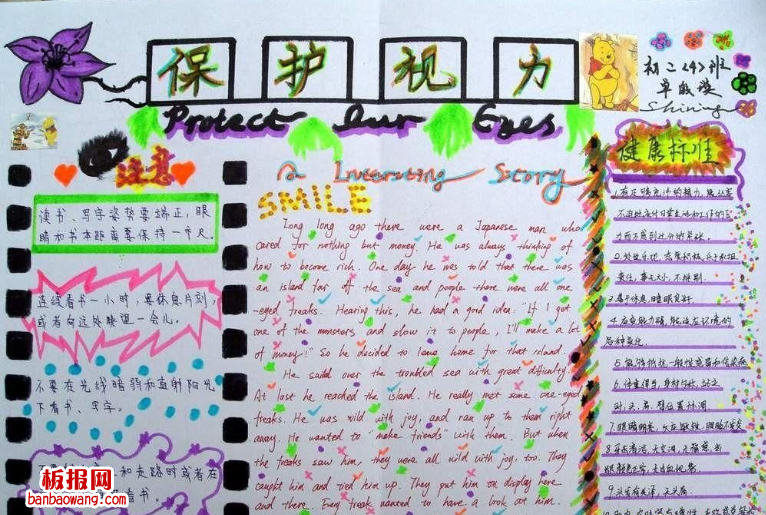 保护视力
Protect Our Eyes
初二〈4〉班
Shining
注意
读书、写字姿势要端正，眼
睛和书本距离要保持一个尺。
连续看书一小时，要休息片刻，
或者向远处眺望一会儿。
不要在光线暗弱和直射阳光
下看书、写字。
和走路时或者在
看书。
A Interesting Story
SMILE
Long long ago there were a Japanese man who
cared for nothing but money. He was always thinking of
how to become rich. One day he was told that there was
an island far of the sea and people there were all one
-eyed freaks. Hearing this, he had a good idea. "If I got
one of the monsters and show it to people, I'll make a lot
of money!" So he decided to leave home for that island.
He saild over the troubled sea with great difficulty.
At last he reached the island. He really met some one-eyed
freaks. He was wild with joy, and ran up to them right
away. He wanted to "make friends" with them. But when
the freaks saw him, they were all wild with joy, too. They
caught him and tied him up. They put him on display here
and there. Every freak wanted to have a look at him.
健康标准
1.有充沛充沛的精力，能从容
不迫地应付日常生活和工作的压
力而不感到过分的紧张。
2.处世乐观，态度积极，乐于承担
责任，事无大小，不挑剔。
3.善于休息，睡眠良好。
4.应变能力强，能适应环境的
各种变化。
5.能够抵抗一般性感冒和传染病
6.体重得当，身材均称，站立
时，头、肩、臂位置协调
7.眼睛明亮，反应敏锐，眼睑不发炎
8.牙齿清洁，无空洞，无痛感，齿
9.头发有光泽，无头屑。
板报网
banbaowang.com